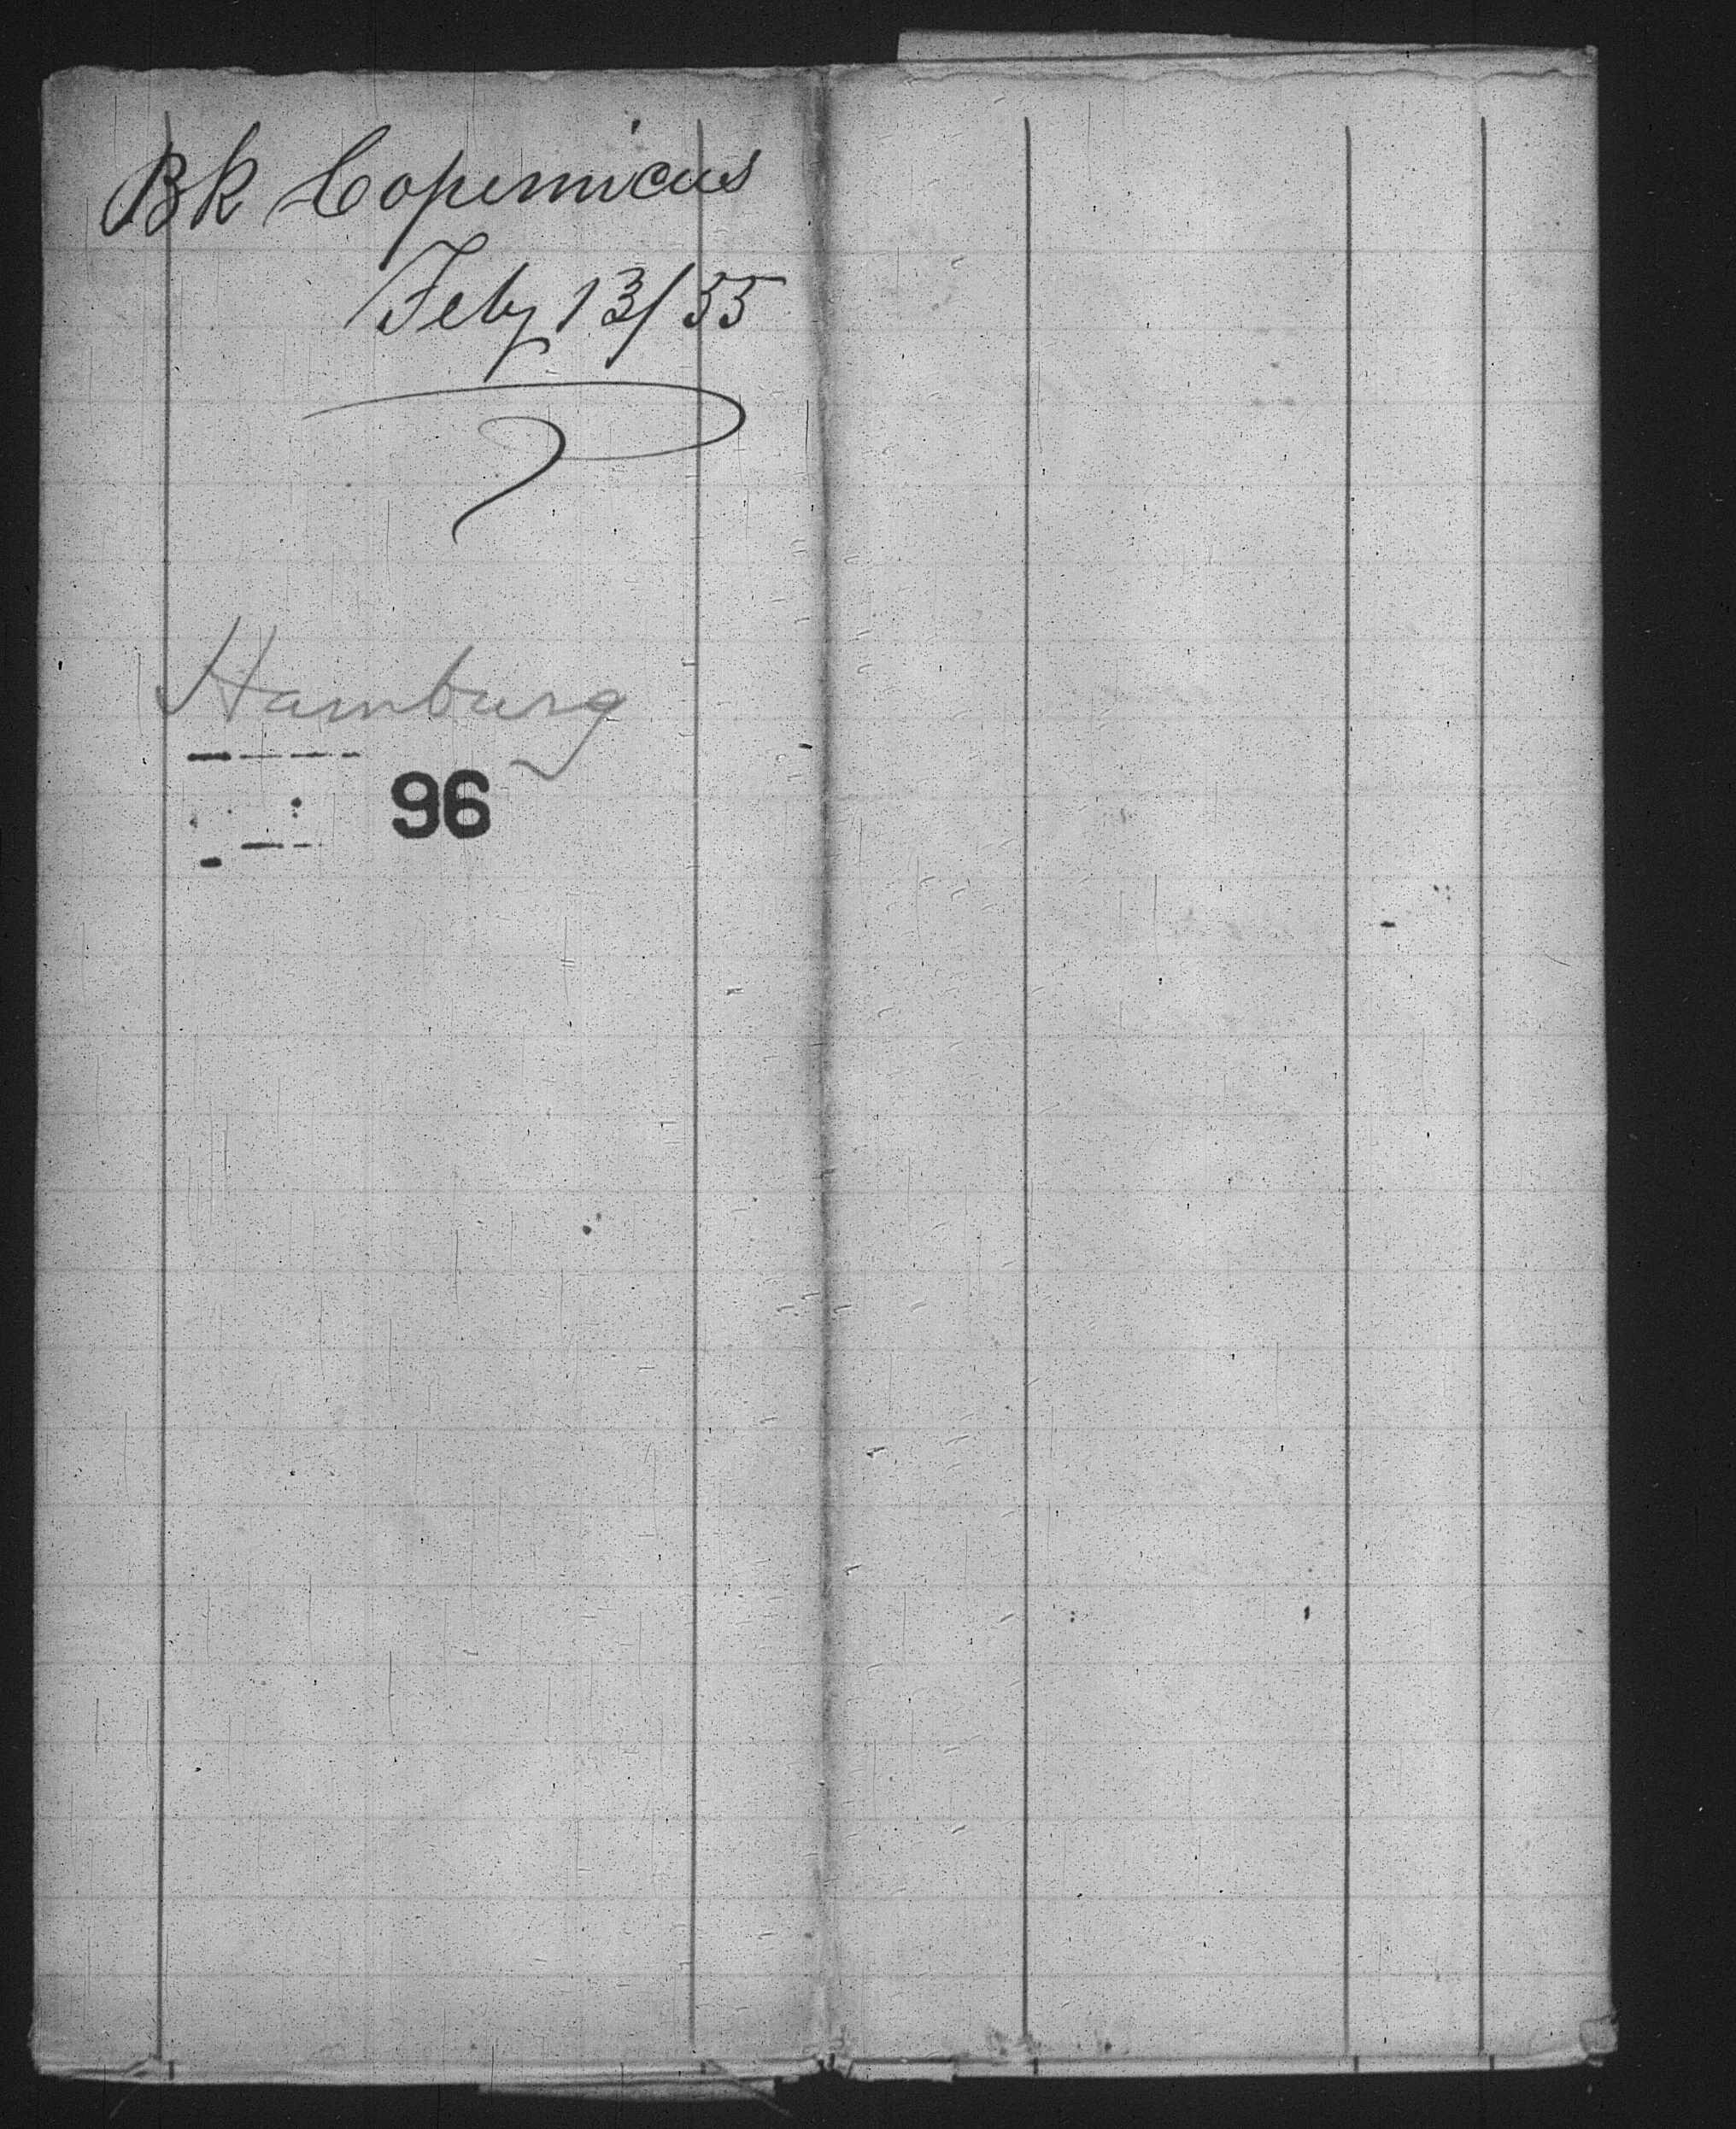 Bk Copernicus
Feby 13/55
Hamburg
96